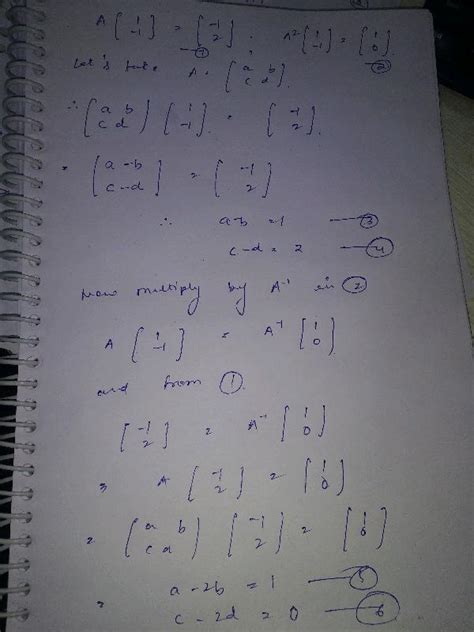 A [1 -1] = [-1 2] . A² [1 -1] = [1 0]
① ②
Let's A = (a b c d)
∴ (a b c d) (1 -1) = [-1 2]
= [a - b c - d] = [-1 2]
∴ a-b = 1 — ③
c - d = 2 — ④
Now multiply by A⁻¹ in ②
A [1 -1] = A⁻¹ [1 0]
and from ①
[-1 2] = A⁻¹ [1 0]
⇒ A [-1 2] = [1 0]
= (a b c d) [-1 2] = [1 0]
= a - 2b = 1 — ⑤
c - 2d = 0 — ⑥